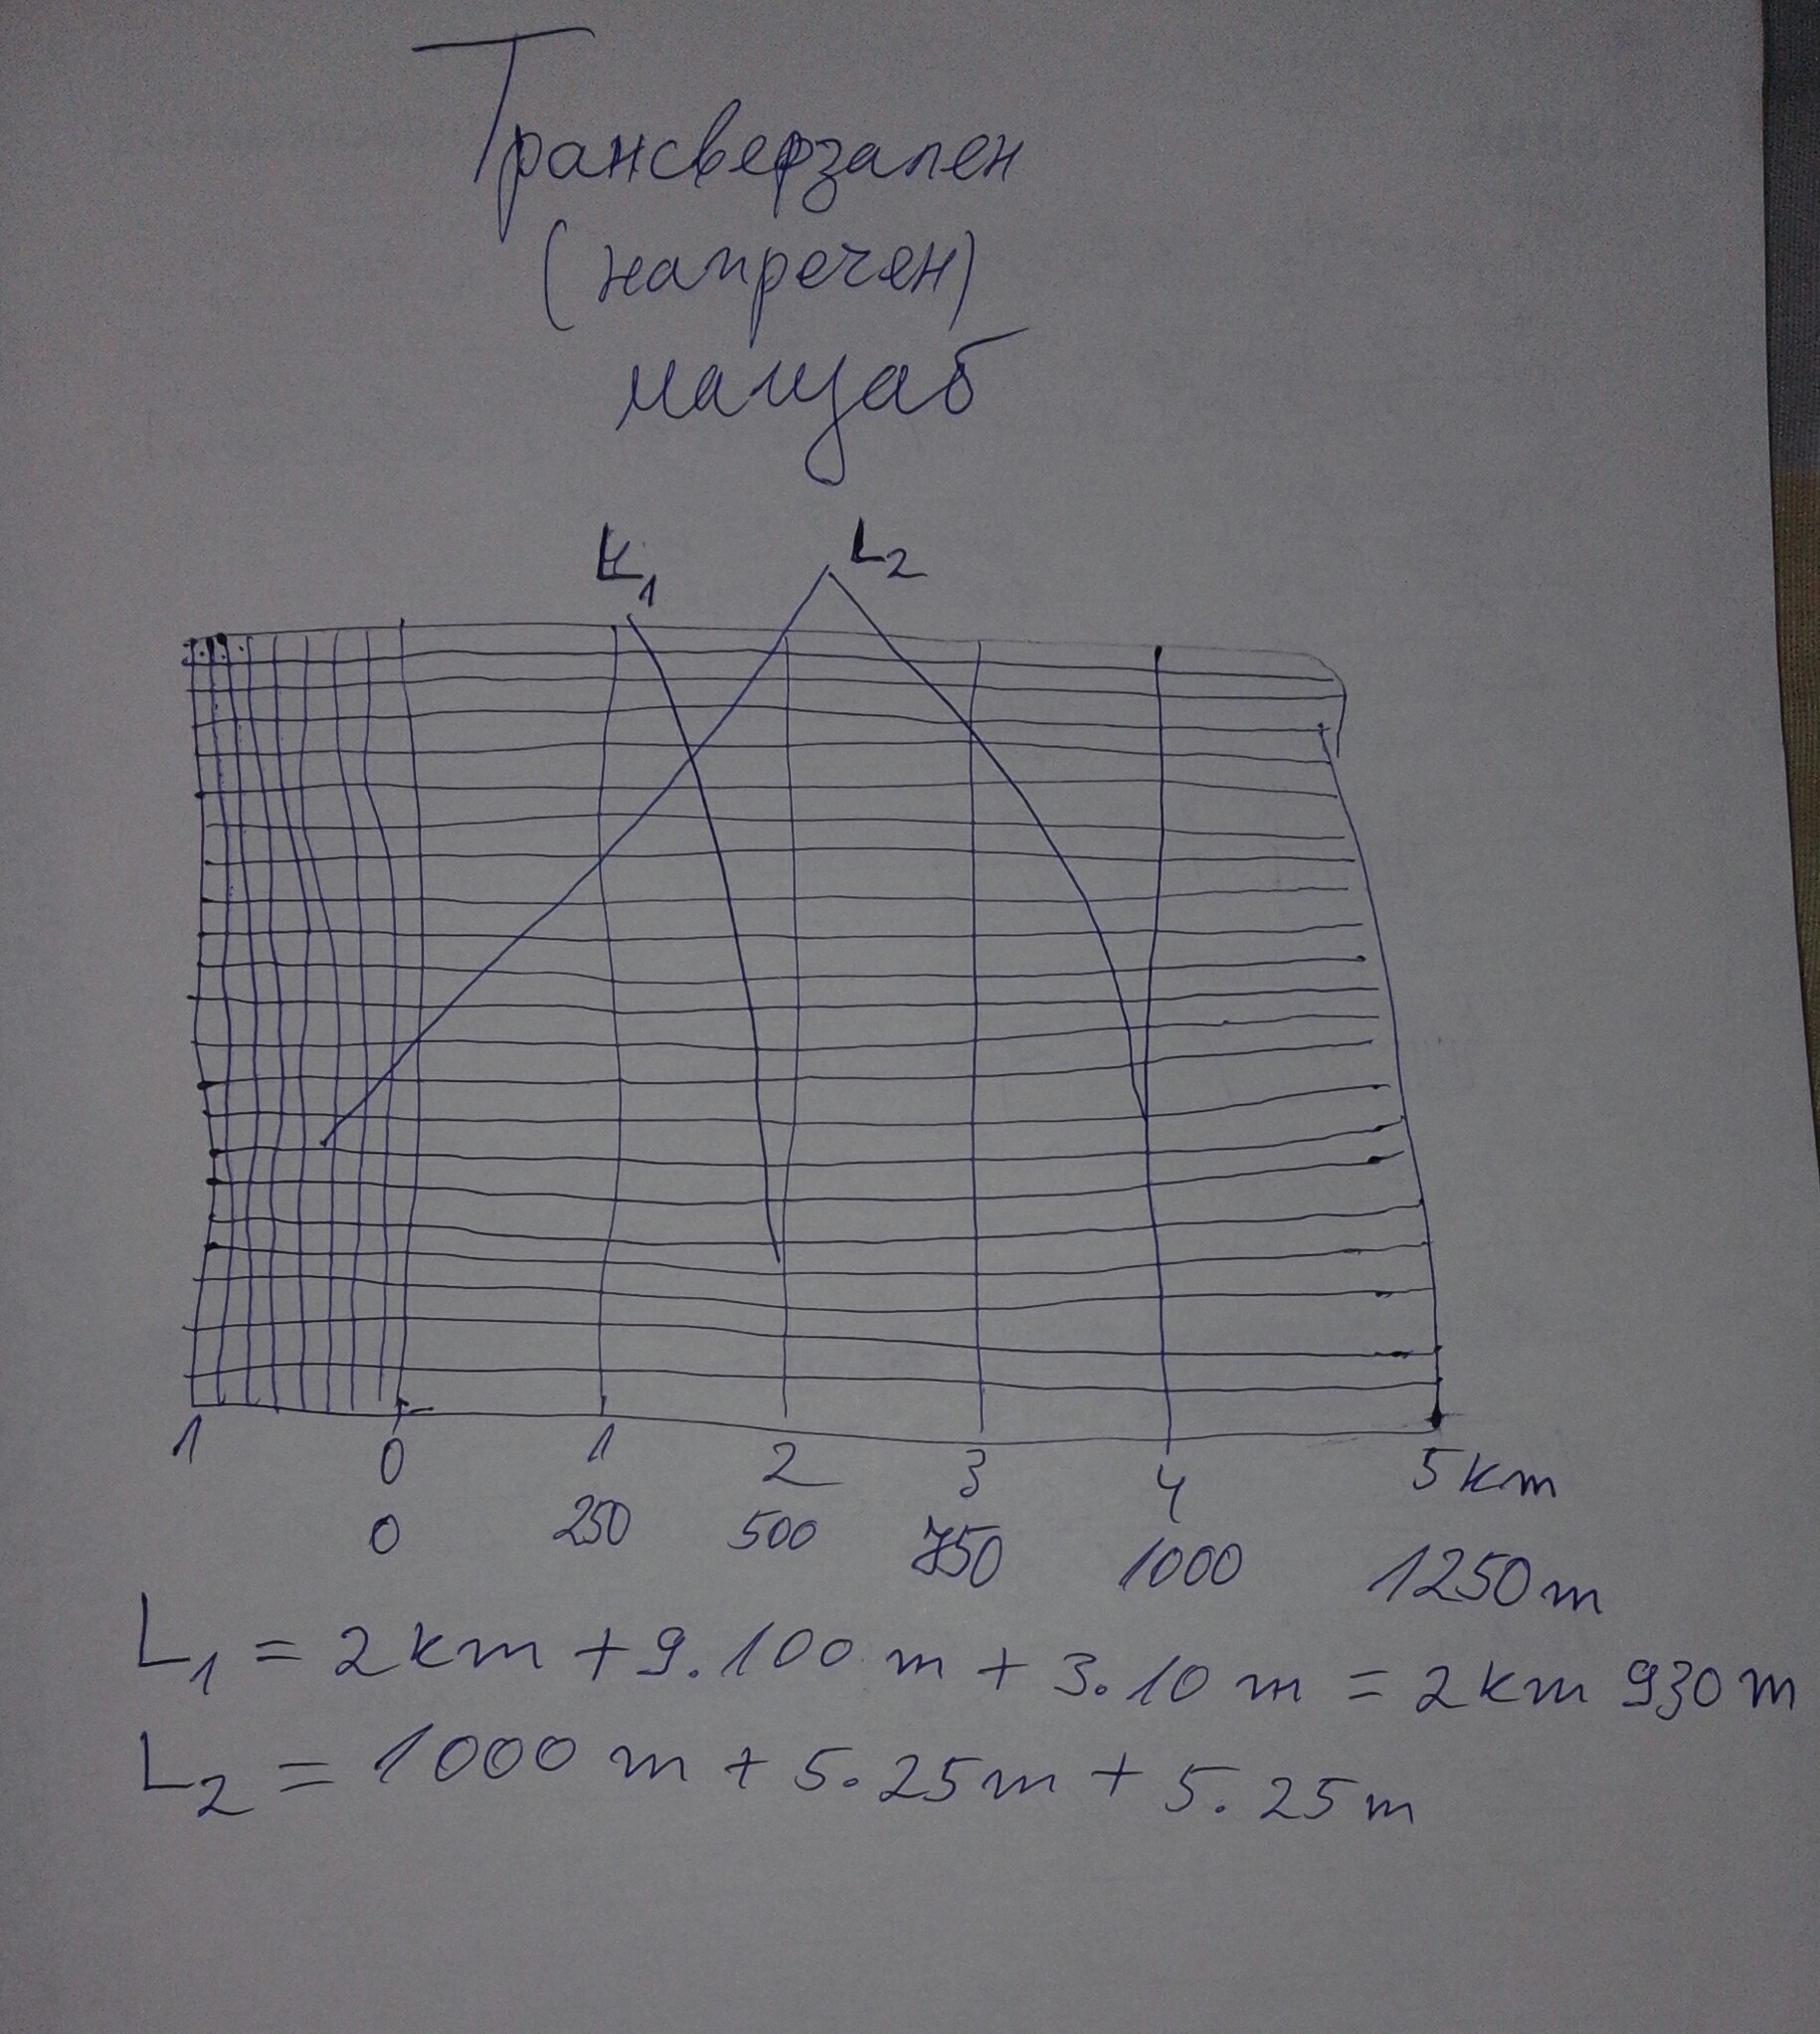 Трансверзален
(напречен)
мащаб
L1 L2
1 0 1 2 3 4 5 km
0 250 500 750 1000 1250 m
L1 = 2 km + 9.100 m + 3.10 m = 2 km 930 m
L2 = 1000 m + 5.25 m + 5.25 m